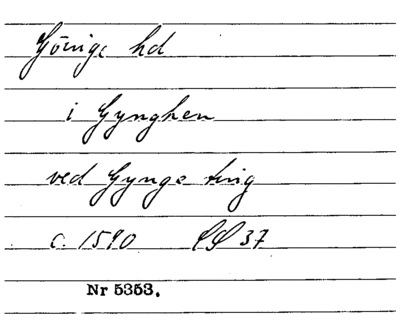 Göinge hd
i Gynghen
ved Gynge ting
c. 1590 37
Nr 5353.